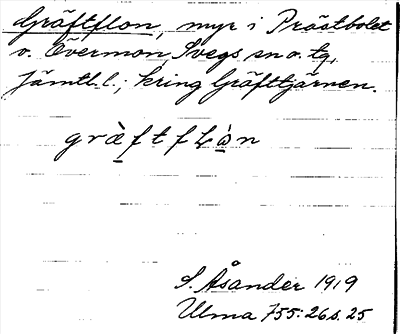 Gräftflon, myr i Prästbolet
v. Övermon, Svegs sn o. tg,
Jämtl. l.; kring Gräfttjärnen.
grὰftfLὰn
S. Åsander 1919
Ulma 755:26 s. 25